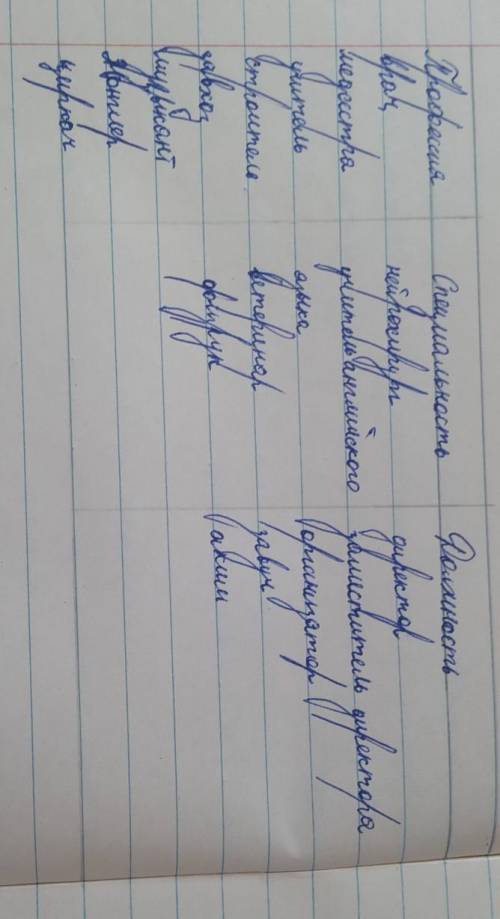 Професия Специальность Должность
врач нейрохирург директор
медсестра учитель английского заместитель директора
учитель языка организатор
строитель ветеринар завуч
физрук аким
музыкант